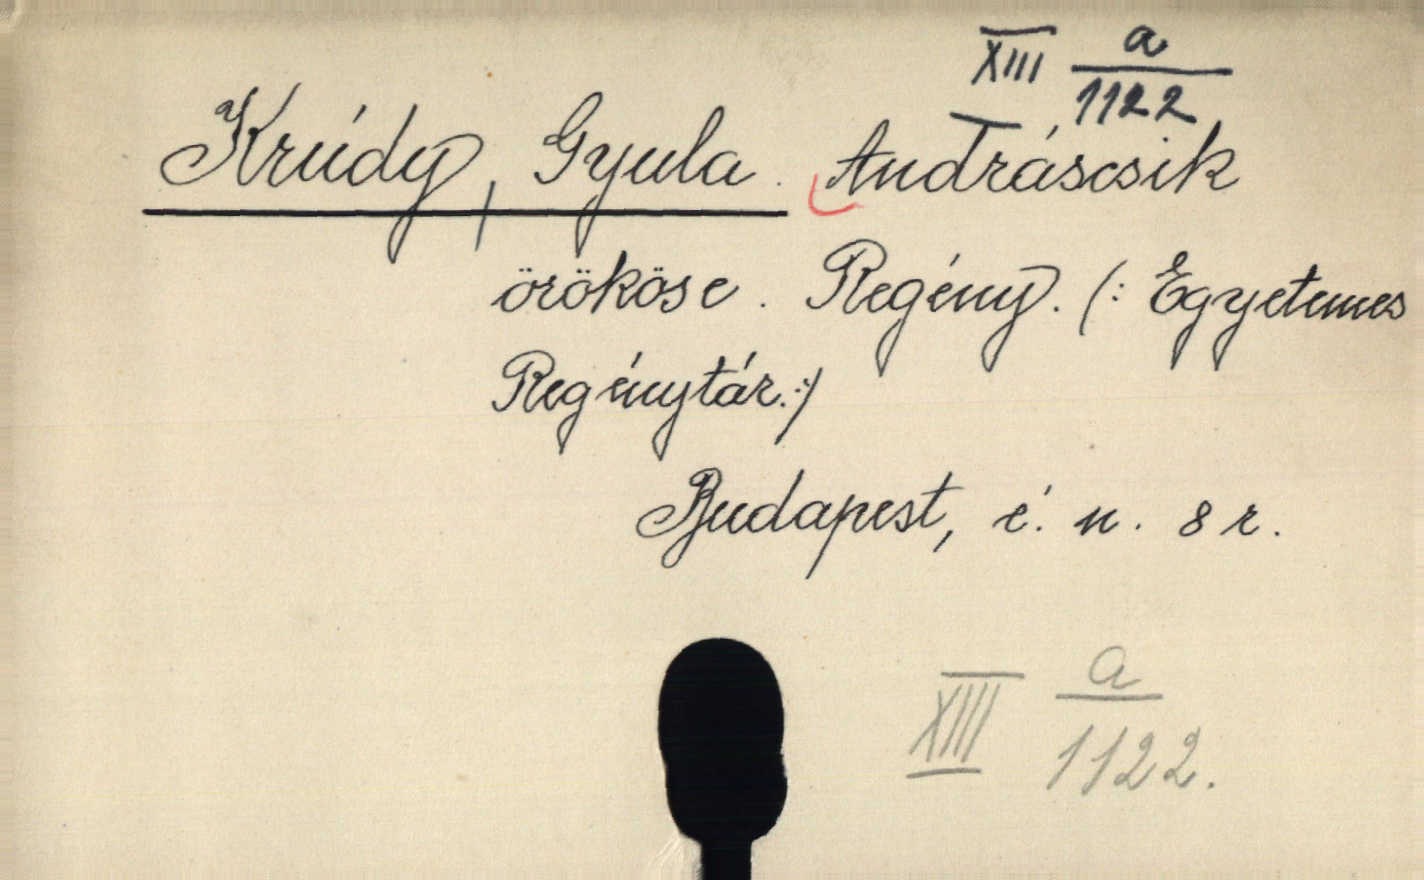 XIII a/1122
Krúdy, Gyula. Andráscsik
örököse. Regény. (: Egyetemes
Regénytár.:)
Budapest, é. n. 8 r.
XIII a/1122.